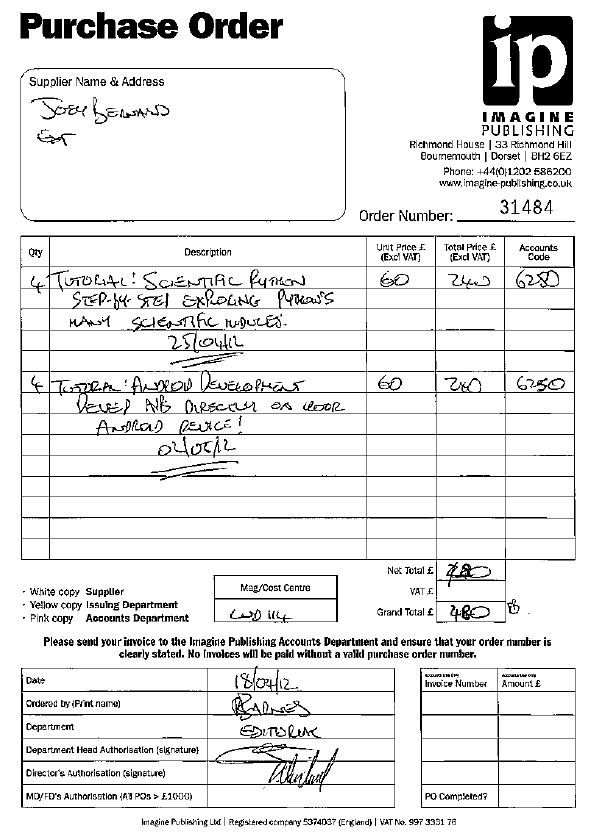 Purchase Order
ip
IMAGINE
PUBLISHING
Richmond House | 33 Richmond Hill
Bournemouth | Dorset | BH2 6EZ
Phone: +44(0)1202 586200
www.imagine-publishing.co.uk
Supplier Name & Address
JOEY BERNARD
Order Number: 31484
Qty Description Unit Price £ (Excl VAT) Total Price £ (Excl VAT) Accounts Code
4 TUTORIAL: SCIENTIFIC PYTHON 60 240 6250
STEP-BY-STEP EXPLORING PYTHON'S
MANY SCIENTIFIC MODULES.
25/04/12
4 TUTORIAL: ANDROID DEVELOPMENT 60 240 6250
DEVELOP APPS DIRECTLY ON YOUR
ANDROID DEVICE!
02/05/12
Net Total £ 480
VAT £
Grand Total £ 480
· White copy Supplier
· Yellow copy Issuing Department
· Pink copy Accounts Department
Mag/Cost Centre
LUD 114
Please send your invoice to the Imagine Publishing Accounts Department and ensure that your order number is
clearly stated. No invoices will be paid without a valid purchase order number.
Date 18/04/12
Ordered by (Print name) R BARNES
Department EDITORIAL
Department Head Authorisation (signature)
Director's Authorisation (signature)
MD/FD's Authorisation (All POs > £1000)
Invoice Number Amount £
PO Completed?
Imagine Publishing Ltd | Registered company 5374037 (England) | VAT No. 997 3331 76